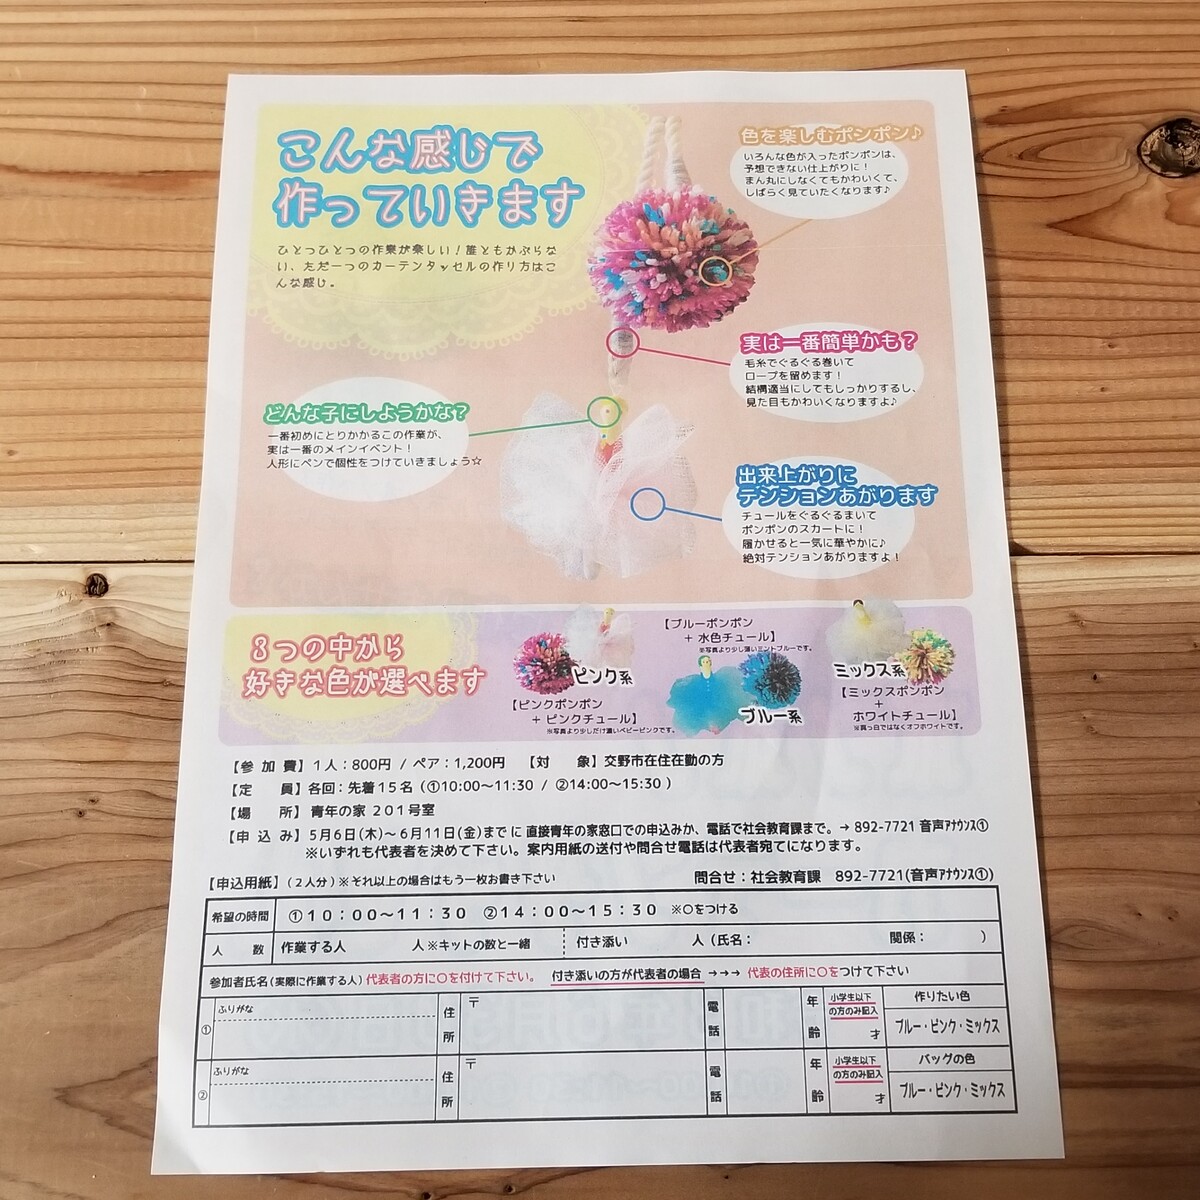 こんな感じで
作っていきます
ひとつひとつの作業が楽しい！誰ともかぶらな
い、ただ一つのカーテンタッセルの作り方はこ
んな感じ。
色を楽しむポンポン♪
いろんな色が入ったポンポンは、
予想できない仕上がりに！
まん丸にしなくてもかわいくて、
しばらく見ていたくなります♪
実は一番簡単かも？
毛糸でぐるぐる巻いて
ロープを留めます！
結構適当にしてもしっかりするし、
見た目もかわいくなりますよ♪
どんな子にしようかな？
一番初めにとりかかるこの作業が、
実は一番のメインイベント！
人形にペンで個性をつけていきましょう☆
出来上がりに
テンションあがります
チュールをぐるぐるまいて
ポンポンのスカートに！
履かせると一気に華やかに♪
絶対テンションあがりますよ！
３つの中から
好きな色が選べます
ピンク系
【ピンクポンポン
＋ピンクチュール】
※写真より少しだけ濃いベビーピンクです。
【ブルーポンポン
＋水色チュール】
※写真より少し薄いミントブルーです。
ブルー系
ミックス系
【ミックスポンポン
＋
ホワイトチュール】
※真っ白ではなくオフホワイトです。
【参 加 費】１人：800円 / ペア：1,200円 【対 象】交野市在住在勤の方
【定 員】各回：先着１５名（①10:00～11:30 / ②14:00～15:30）
【場 所】青年の家 ２０１号室
【申 込 み】５月６日(木)～６月１１日(金)までに直接青年の家窓口での申込みか、電話で社会教育課まで。→ 892-7721 音声ｱﾅｳﾝｽ①
※いずれも代表者を決めて下さい。案内用紙の送付や問合せ電話は代表者宛てになります。
【申込用紙】（２人分）※それ以上の場合はもう一枚お書き下さい 問合せ：社会教育課 892-7721(音声ｱﾅｳﾝｽ①)
希望の時間 ①１０：００～１１：３０ ②１４：００～１５：３０ ※○をつける
人 数 作業する人 人 ※キットの数と一緒 付き添い 人（氏名： 関係： ）
参加者氏名（実際に作業する人）代表者の方に○を付けて下さい。 付き添いの方が代表者の場合 →→→ 代表の住所に○をつけて下さい
① ふりがな 住所 〒 電話 年齢 小学生以下の方のみ記入 才 作りたい色 ブルー・ピンク・ミックス
② ふりがな 住所 〒 電話 年齢 小学生以下の方のみ記入 才 バッグの色 ブルー・ピンク・ミックス